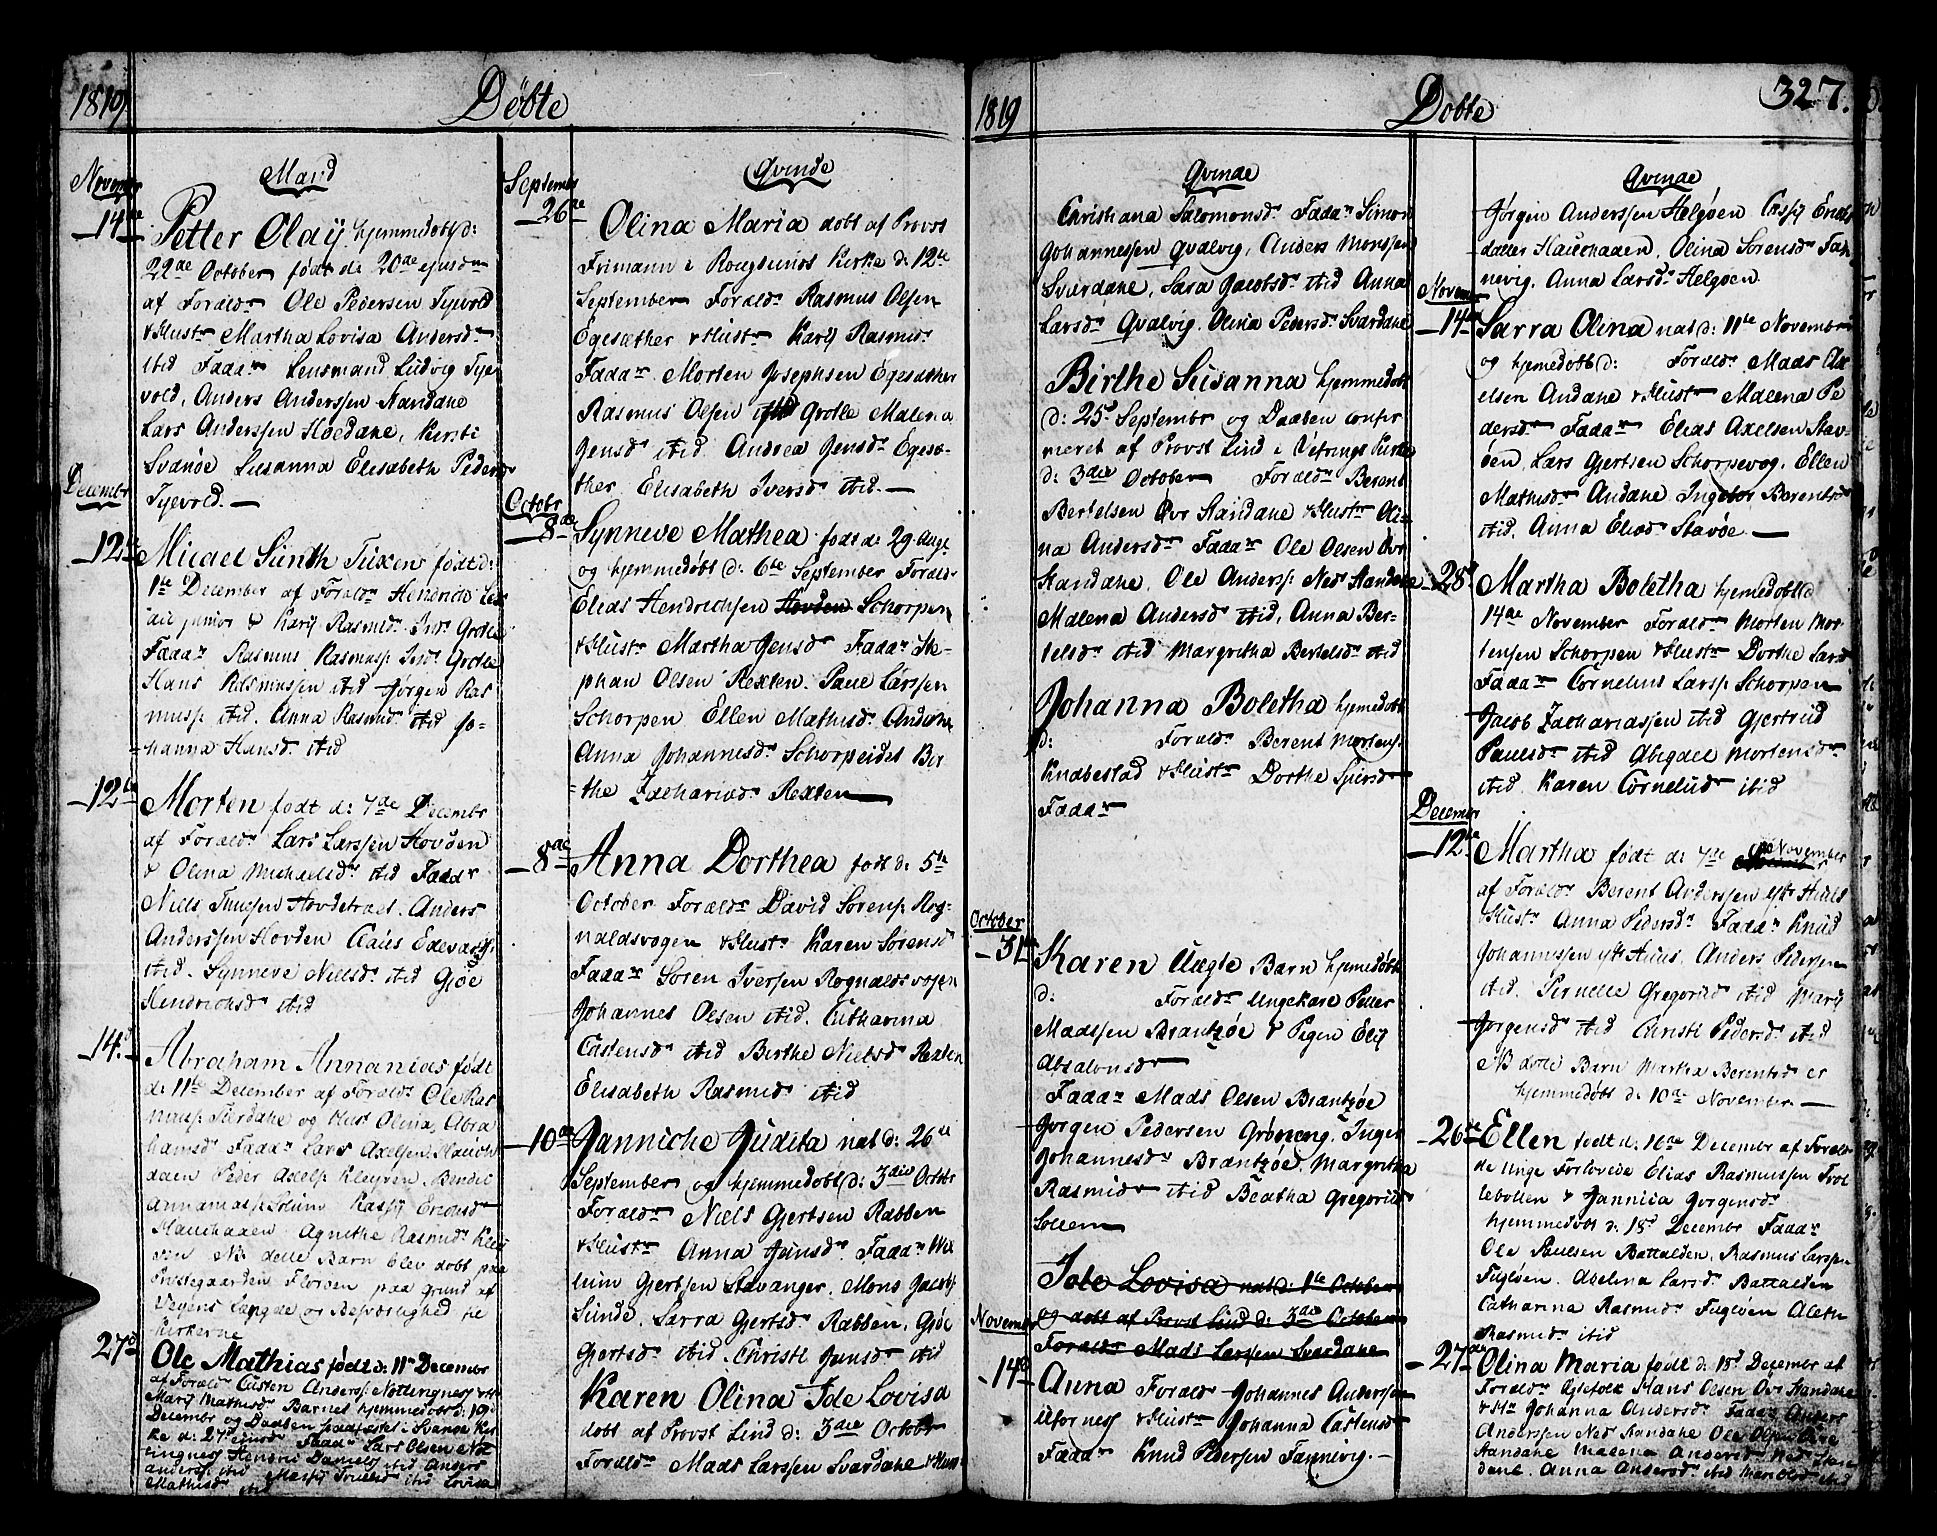 1819
Döbte
Mand
Novembr
14de
Petter Olaÿ hjemmedobt d:
22de October födt de 20de ejusdm
af Forældr Ole Pedersen Tyevold
& Hustr Martha Lovisa Andersdr
itid Faddr Lensmand Ludvig Tye
vold, Anders Anderssen Nandane
Lars Anderssen Hoedane, Kersti
Svanöe Susanna Elisabeth Pedersdr
Tyevold.
Decembr
12te
Micael Sünth Tuxen födt d:
1te December af Foraldr Hendrich
junior & Karÿ Rasmusd. Indr Grotle
Fadar Rasmus Rasmusf. Indr Grotle
Hans Rasmussen itid Jørgen Ras
musf. itid. Anna Rasmusd. itid Jo-
hanna Hansd. itid
12te
Morten födt d: 7de Decembr
af Forældr Lars Larssen Hovden
& Olina Michaelsdr itid Fadar
Niels Hovdetræet. Anders
Anderssen Hovden Claus Edevardsf.
itid. Synneve Nielsdr itid Gjöe
Hendrichsdr itid
14.d
Abraham Annanias födt
d: 11te December af Forældr Ole Ras
musf. og Hust Olina Abra
hamsd Fadar Lars Axelsen Hauch
aaen Peder Axelsf. Kleyven. Bendic
annaniasf. Solum Ericsdr
Hauchaaen Agnethe Rasmusd.
NB dette Barn blev dobt paa
Prestegaarden Floröen paa grund af
Veyens Længde og Besværlighed til
Kirkerne
27d
Ole Mathias födt d: 11 Decembr
af Forald. Casten Andersf. Nottingnes
Marÿ Mathisd Barnet hjemmedobt d: 19d
Decembr og Daaben paafastet i Svanöe Kir
ke d: 27d ejusd Fadar Lars Olsen Not
tingnes Hendric Danielsf. itid Anders
andersf. itid itid Lovisa
Mathisdr itid
Qvinde
Septembr
26de
Olina Maria dobt af Provst
Frimann i Rougsunds Kirke d: 12te
September Foraldr Rasmus Olsen
Egesæther & Hustr Karÿ Rasmisdr
Fadar Morten Josephsen Egesæther
Rasmus Olsen Grotle Malena
Jensdr itid Andrea Jensdr Egesæ-
ther Elisabeth Iversdr itid.
Octobr
8de
Synneve Mathea födt de 29 Augt
og hjemmedøbt d: 6te September Forældr
Elias Hendrichsen Hovden Schorpen
& Hustr Martha Jensdr Fadar Ste-
phan Olsen Rexten. Paul Larssen
Schorpen Ellen Mathisdr Andahe
Anna Johannesdr Schorpeidet Bir
the Zachariasdr Rexten
8de
Anna Dorthea födt d: 5te
October Foraldr David Sörensf. Rog-
naldsvogen & Hustr Karen Sörensdr
Fadar Sören Iverssen Rognaldsvogen
Johannes Olsen itid. Catharina
Castensdr itid Birthe Nielsdr Rexten
Elisabeth Rasmisdr itid
10de
Janniche Judita nat d: 26de
September og hjemmedobt d: 3die Octobr
Foraldr Niels Gjertsen Rabben
& Hustr Anna Jensdr Fadar Wil
lum Gjertsen Stavanger, Mons Jacobsf.
Sunde, Sarra Gjertsdr Rabben, Gjöe
Gjertsdr itid. Christi Jensdr itid
Karen Olina Ide Lovisa
dobt af Provst Lind d: 3die Octobr
Foraldr Mads Larssen Svardahe & Hust
1819
Dobte
327.
Qvinde
Christiana Salomonsdr Fadar Simon
Johannessen Qvalvig, Anders Monssen
Sværdahe, Sara Jacobsdr itid Anna
Larsdr Qvalvig. Olina Pedersdr Svardahe
Birthe Susanna hjemmedobt
d: 25d Septembr og Daaben confir
meret af Provst Lind i Vefrings Kirke
d: 3die October Foraldr Berent
Bertelsen Övr Standahe & Hustr Oli-
na Andersdr Fadar Ole Olsen Övr
Standahe, Ole Andersf. Ned Standahe
Malena Andersd itid, Anna Ber-
telsdr itid Margretha Bertelsdr itid
Johanna Boletha hjemedobt
d: Foraldr Berent Mortensf.
Knabestad & Hustr Dorthe Siversdr
Fadar
October
31te
Karen Uægte Barn hjemedobt
d: Foraldr Ungekarl Petter
Madssen Brantzöe & Pigen Eliÿ
Absalonsdr
Fadar Mads Olsen Brantzöe
Jörgen Pedersen Gröneng, Inger
Johannesdr Brantzöe, Margretha
Rasmisdr itid Beatha Gregorisdr
Sollem
Ide Lovisa nat d: 1te October
og dobt af Provst Lind d: 3die October
Foraldr Mads Larssen Svardahe
Novembr
14de
Anna Foraldr Johannes Andersen
Ulfornes & Hustr Johanna Castensdr
Fadar Knud Pedersen Tannevig.
Qvinde
Jørgen Anderssen Helgöen Erichs
datter Hauchaaen. Olina Sorensdr Tan
nevig. Anna Larsdr Helgöen
Novembr
14de
Sarra Olina nat d: 11te Novembr
og hjemedobt d: Forældr Mads Ax
elsen Andahe & Hustr Malena Pe
dersdr Fadar Elias Axelsen Stav-
öen, Lars Gjertsen Schorpevog. Ellen
Mathisdr Andahe Ingebor Berentsdr
itid. Anna Eliasdr Stavöe
28d
Martha Boletha hjemedobt d
14de November Foraldr Morten Mor
tensen Schorpen & Hustr Dorthe Larsdr
Fadar Cornelius Larsf. Schorpen
Jacob Zachariassen itid Gjertrud
Paulsdr itid Abigael Mortensdr
itid Karen Cornelisdr itid
Decembr
12te
Martha födt d: 7de November
af Foraldr Berent Anderssen Huus
& Hustr Anna Pedersdr Fadar Knud
Johannessen Huus, Anders Pedersen
itid. Pernelle Gregorisd itid Marÿ
Jörgensdr itid Christi Pedersdr itid
NB dette Barn Martha Berentsd er
hjemmedøbt d: 10de November
26de
Ellen födt d: 16de Decembr af Forældr
de Unge Forlovede Elias Rasmussen Trol
lebotten & Jannica Jorgensdr
hjemmedobt d: 18d Decembr Fadar
Ole Paulsen Battalden, Rasmus Larssen
Fuglöen. Abelina Larsdr Battalden
Catharina Rasmisdr Fuglöen Aleth
Rasmisdr itid
27de
Olina Maria födt d: 18d December af
Foraldr Hans Olsen Övr Standahe
& Hr Johanna Andersdr Fadar Anders
Anderssen Ned Standahe Ole Olsen Övre
Standahe Malena Andersdr Ned Stan
dahe. Anna Andersdr itid itid